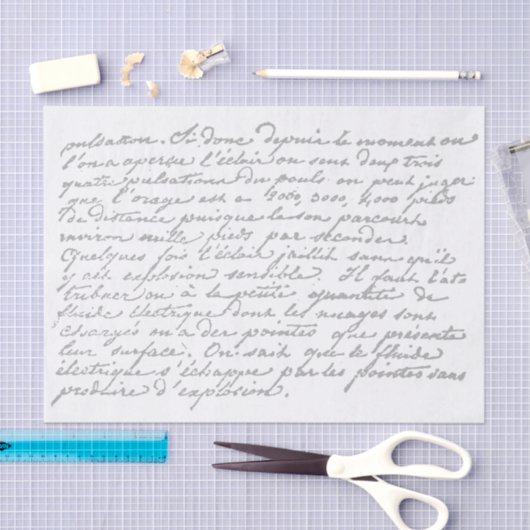 pulsation. Si donc depuis le moment ou
l'on a aperçu l'éclair on sent deux trois
quatre pulsations du pouls on peut juger
que l'orage est a 2000, 3000, 4,000 pieds
de distance puisque le son parcourt
environ mille pieds par seconder.
Quelques fois l'éclair jaillit sans qu'il
y ait explosion sensible. Il faut l'at
tribuer ou à la petite quantité de
fluide électrique dont les nuages sont
chargés ou a der pointes que présente
leur surface. On sait que le fluide
électrique s'échappe par les pointes sans
produire d'explosion.